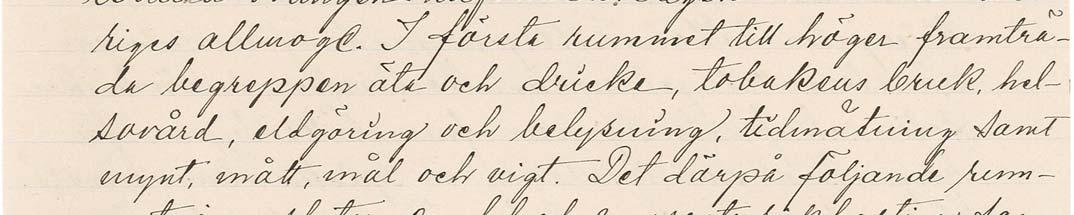 riges allmoge. I första rummet till höger framträ-
da begreppen äta och dricka, tobakens bruk, hel-
sovård, eldgöring och belysning, tidmätning samt
mynt, mått, mål och vigt. Det därpå följande rum-